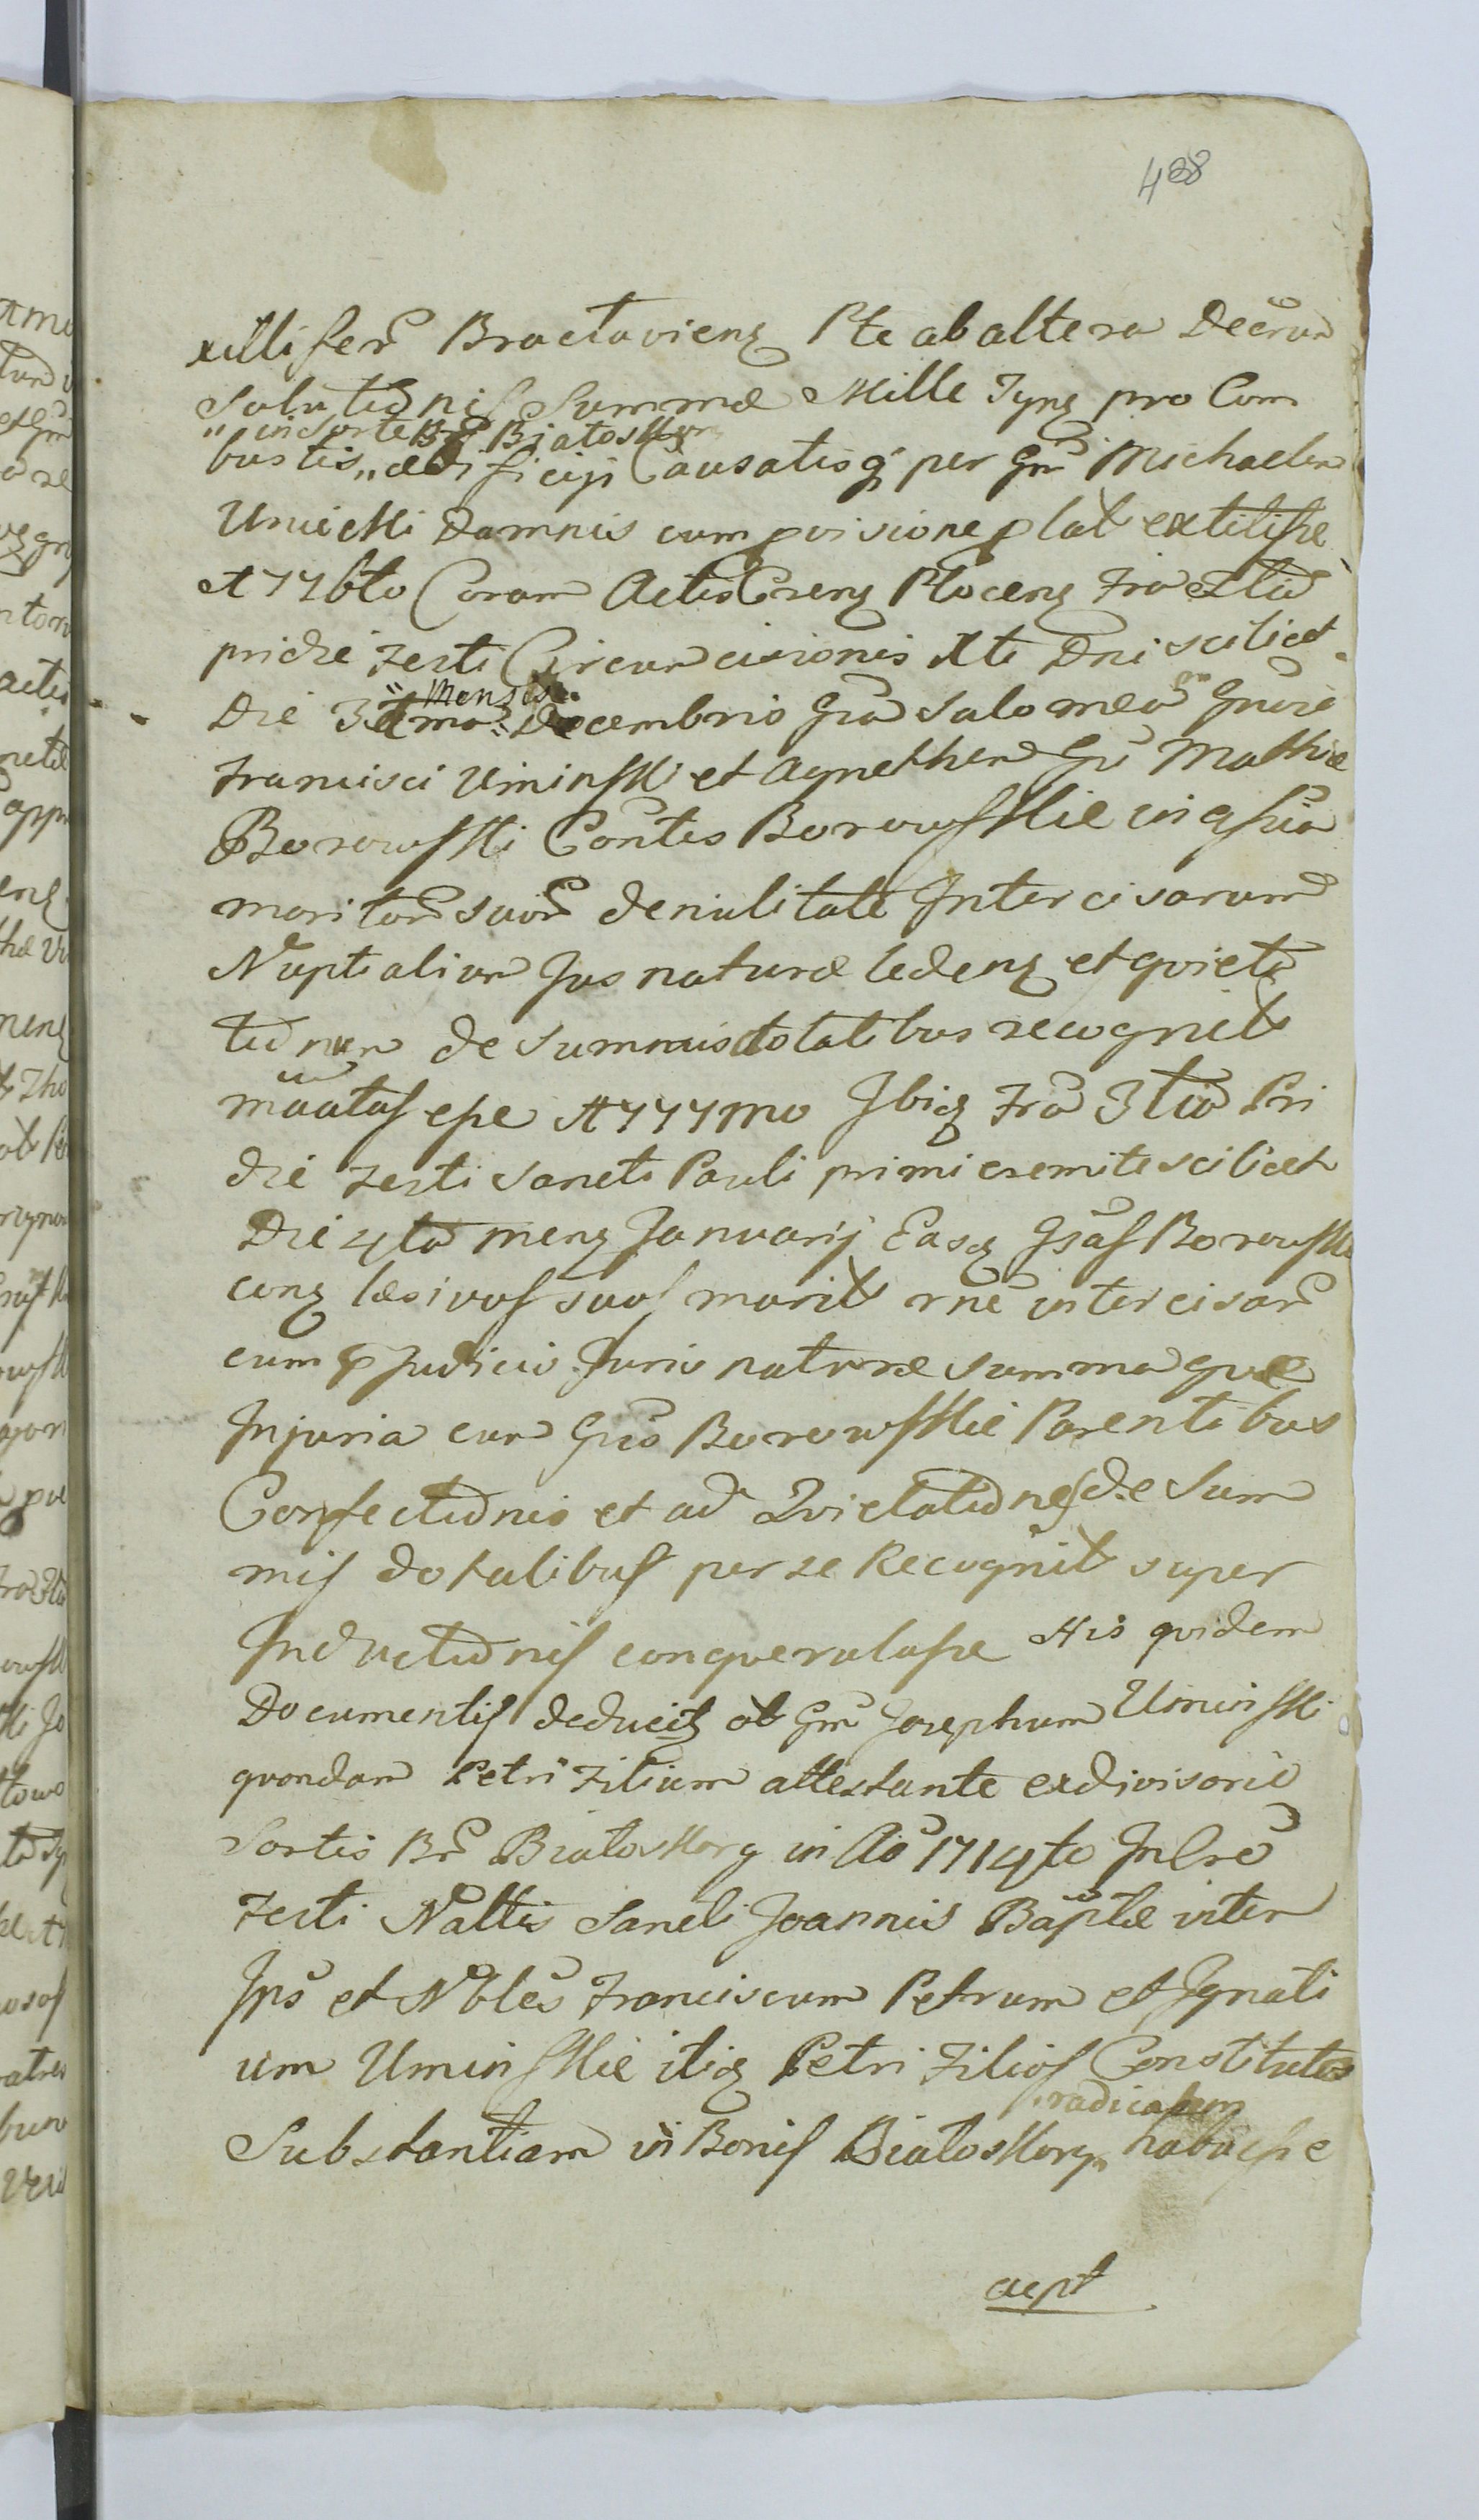 488
xilliferũ Bractavieng Pte ab altera Decrum
Solutionis Summæ Mille Tyng pro Com
"in Sorte Br Białoskor
bustis " ædificiis Causatisq per Gm Michaelem
Unicki Damnis cum provisione plat extitisse
A 776to Coram Actis Creng Ploceng Fra
pridie Festi Circumcisionis Xti Dni scilicet
" Mensis
Die 31ma " Decembris Gsa Salomea
Francisci Uminski et Agnetham Gsi Mathiæ
Borowski Contes Borowskie in assia
maritorũ suorũ de nulitate Intercisarum
Nuptialium Jus naturæ ledeng et quieta
tionum de Summis dotalibus recognit
mãatas esse A 777mo Ibiq Fra 3tia Pri
die Festi Sancti Pauli primi eremite scilicet
Die 4ta meng Januarij Easq Gsas Borowski
cong læsivos suos marit rne intercisarũ
cum præjudicio Juris naturæ summaque
Injuria cum Gsis Borowskie Parentibus
Confectionis et ad Quietationes de Sum
mis dotalibus per se Recognit super
Inductionis conquerulasse His quidem
Documentis deducitq ob Gm Josephum Uminski
quondam Petri Filium attestante exdivisorio
Sortis Br Białoskory in Ao 1714to In Cro
Festi Nattis Sancti Joannis Baptæ inter
Ips et Nobles Franciscum Petrum et Ignati
um Uminskie itiq Petri Filios Constitutos
radicatum
Substantiam in Bonis Białoskory habuisse
acpt